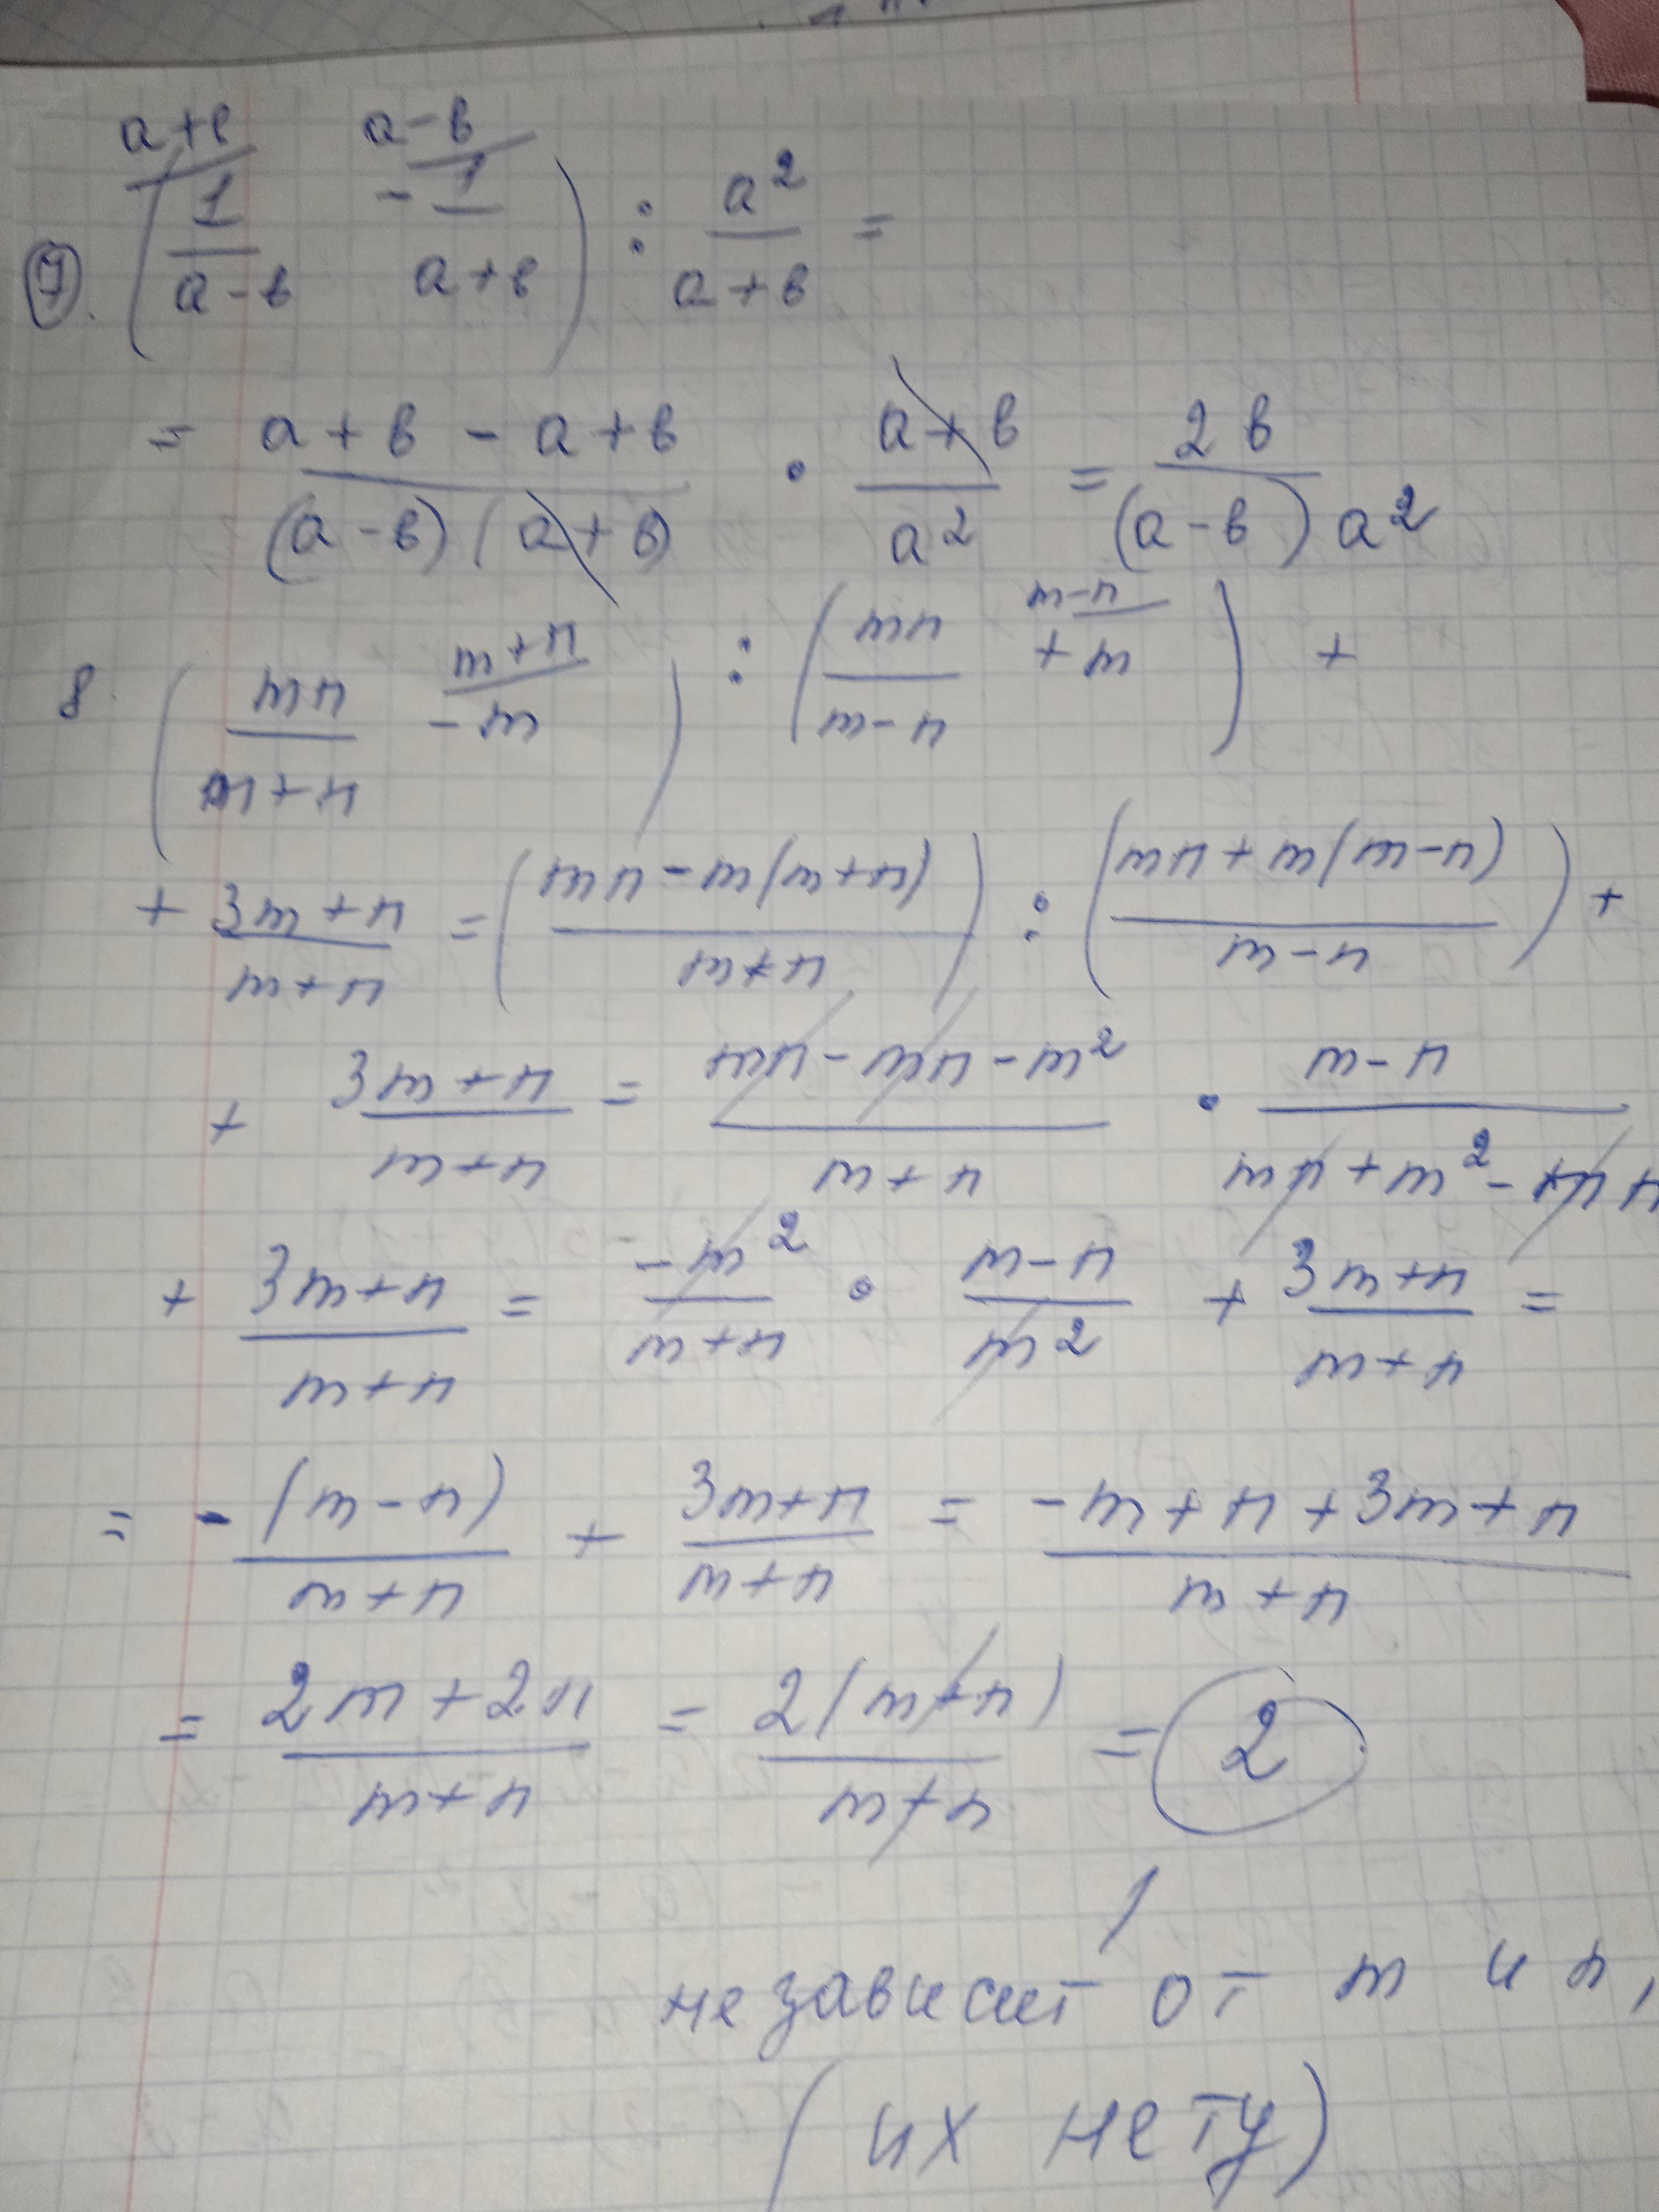 7. (1/(a-b)^(a+b) - 1/(a+b)^(a-b)) : a²/(a+b) =
= (a+b-a+b)/((a-b)(a+b)) · (a+b)/a² = 2b/((a-b)a²)
8. (mn/(m+n) - m^(m+n)) : (mn/(m-n) + m^(m-n)) +
+ (3m+n)/(m+n) = ((mn-m(m+n))/(m+n)) : ((mn+m(m-n))/(m-n)) +
+ (3m+n)/(m+n) = (mn-mn-m²)/(m+n) · (m-n)/(mn+m²-mn)
+ (3m+n)/(m+n) = -m²/(m+n) · (m-n)/m² + (3m+n)/(m+n) =
= -(m-n)/(m+n) + (3m+n)/(m+n) = (-m+n+3m+n)/(m+n)
= (2m+2n)/(m+n) = 2(m+n)/(m+n) = 2
не зависит от m и n,
(их нету)